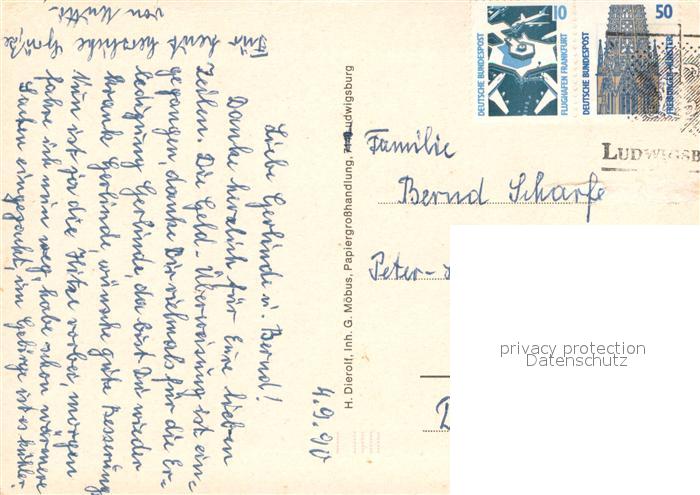 4.9.90
Liebe Gerlinde u. Bernd!
Danke herzlich für Eure lieben
Zeilen. Die Geld-Überweisung ist ein-
gegangen, danke Dir vielmals für die Er-
ledigung Gerlinde, da bist Du wieder
krank Gerlinde, wünsche gute Besserung
Nun ist ja die Hitze vorbei, morgen
fahre ich nun weg, habe schon wärmere
Sachen eingepackt, im Gebirge ist es kühler.
Für heut herzliche Grüße
von Mutti.
H. Dierolf, Inh. G. Möbus, Papiergroßhandlung, Ludwigsburg
10
DEUTSCHE BUNDESPOST
FLUGHAFEN FRANKFURT
50
DEUTSCHE BUNDESPOST
FREIBURGER MÜNSTER
LUDWIGSB
Familie
Bernd Scharfe
Peter-
privacy protection
Datenschutz